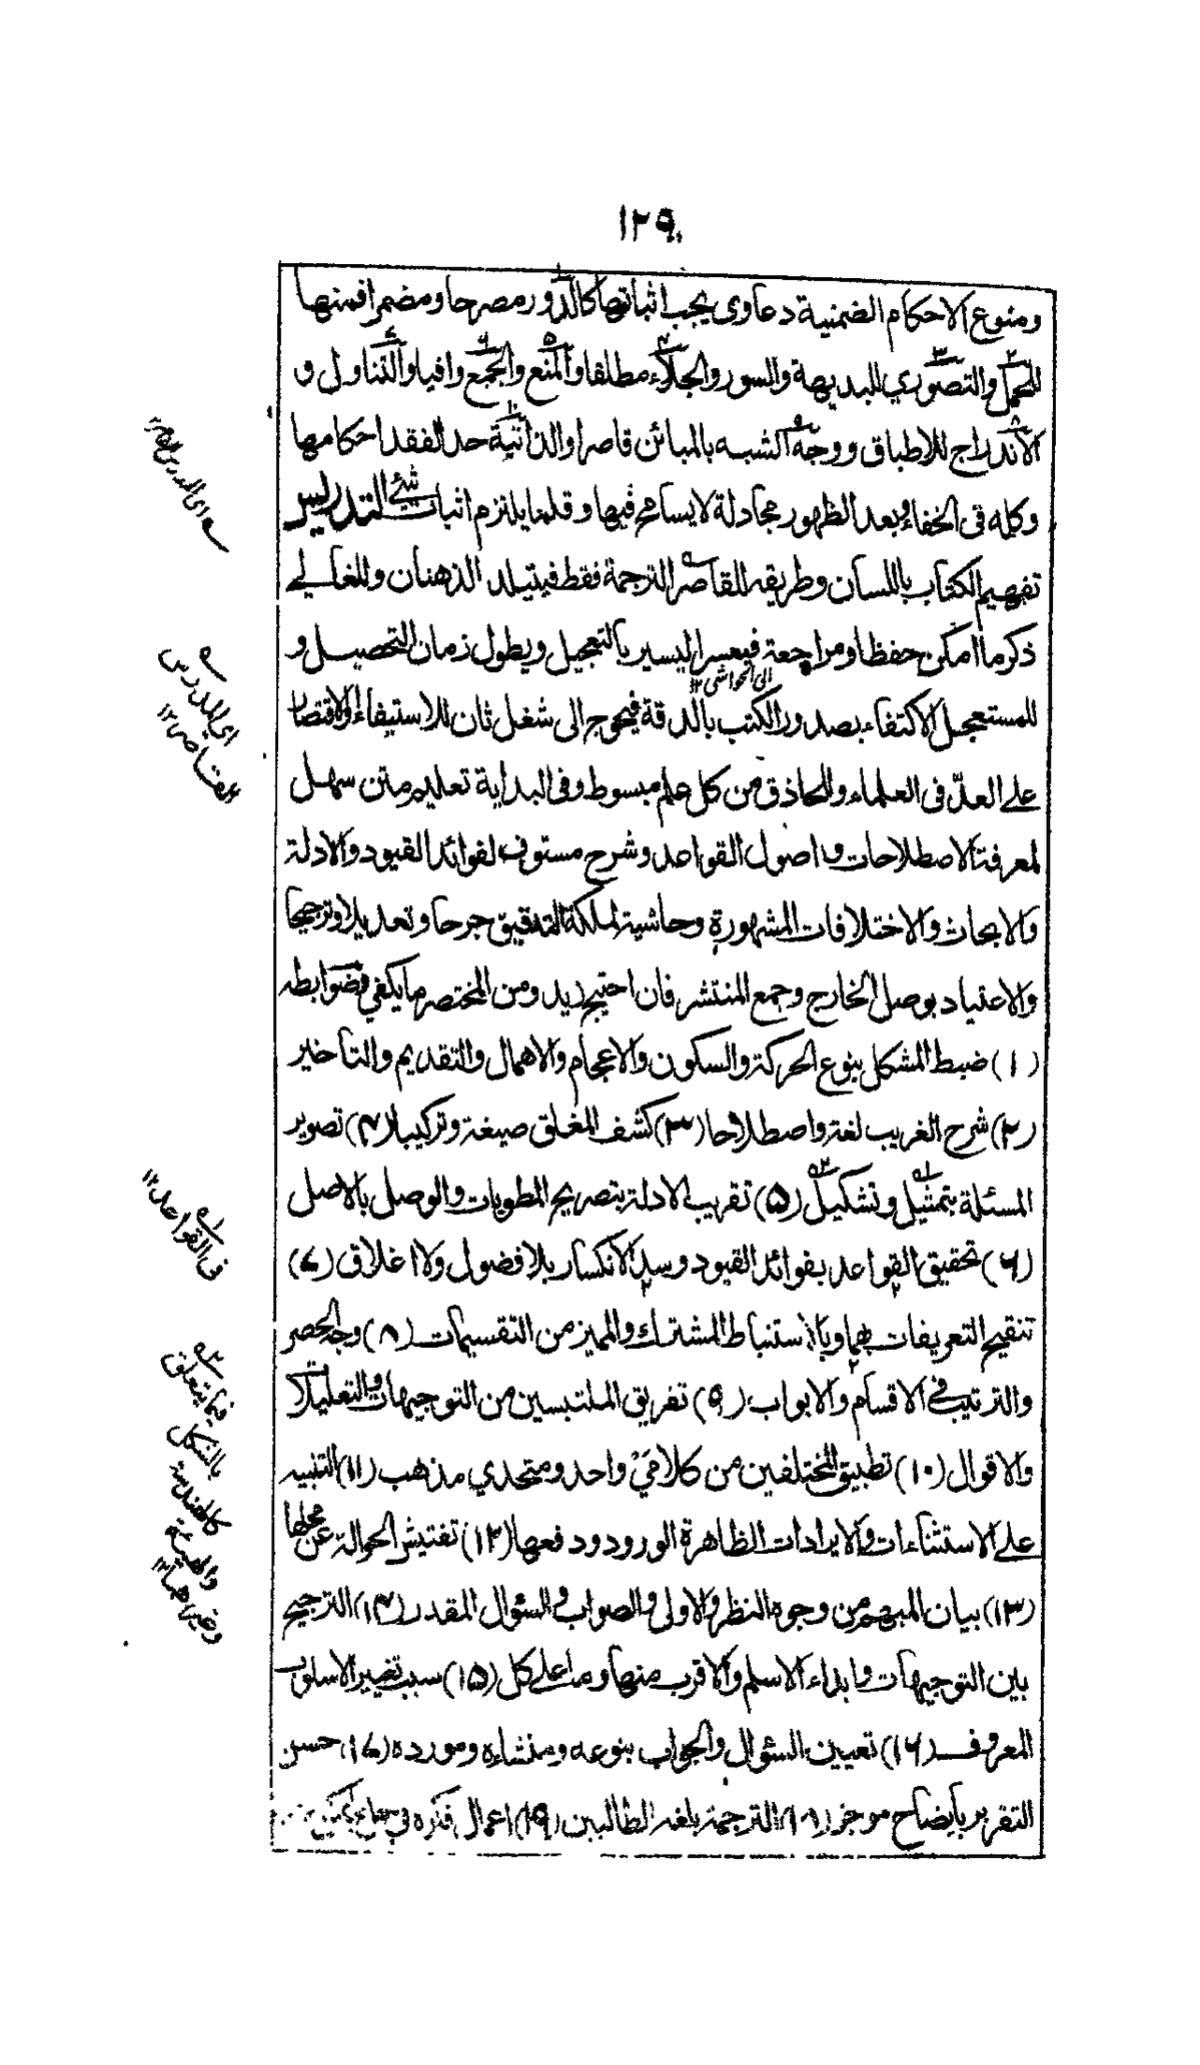 ١٢٩
ومنوع الاحكام الضمنية دعاوى يجب اثباتها كالدور مصرحا ومضمرا فمنها
للحمل والتصوري للبديهة والسور والجلاء مطلقا والمنع والجمع وافيا والتناول و
الاندراج للاطباق ووجه الشبه بالمبائن قاصرا والذاتية حد الفقد احكامها
وكله فى الخفاء وبعد الظهور مجادلة لا يسامح فيها وقلما يلتزم اثبات شئ التدريس
تفهيم الكتاب باللسان وطريقه للقاصر الترجمة فقط فيتبلد الذهنان وللغالي
ذكر ما امكن حفظا ومراجعة فيعسر اليسير بالتعجيل ويطول زمان التحصيل و
الى الحواشى ١٢
للمستعجل الاكتفاء بصدور الكتب بالدقة فيحوج الى شغل ثان للاستيفاء او الاقتصار
على العدّ فى العلماء والحاذق من كل علم مبسوط وفى البداية تعليم متن سهل
لمعرفة الاصطلاحات واصول القواعد وشرح مستوف لفوائد القيود والادلة
والابحاث والاختلافات المشهورة وحاشية لملكة التدقيق جرحا وتعديلا وترجيحا
والاعتياد بوصل الخارج وجمع المنتشر فان احتيج زيد ومن المختصر ما يكفي فضوابطه
(١) ضبط المشكل بنوع الحركة والسكون والاعجام والاهمال والتقديم والتاخير
(٢) شرح الغريب لغة واصطلاحا (٣) كشف المغلق صيغة وتركيبا (۴) تصوير
المسئلة بتمثيل وتشكيل (۵) تقريب الادلة بتصريح المطويات والوصل بالاصل
(۶) تحقيق القواعد بفوائد القيود وسد الانكسار بلا فضول ولا اغلاق (٧)
تنقيح التعريفات بهما وبالاستنباط المشترك والمميز من التقسيمات (٨) وجه الحصر
والترتيب فى الاقسام والابواب (٩) تفريق الملتبسين من التوجيهات والتعليلات
والاقوال (١٠) تطبيق المختلفين من كلامَيْ واحد ومتحدي مذهب (١١) التنبيه
على الاستثناءات والايرادات الظاهرة الورود ودفعها (١٢) تفتيش الحوالة عن محلها
(١٣) بيان المبهم من وجوه النظر والاولى والصواب والسؤال المقدر (١۴) الترجيح
بين التوجيهات وابداء الاسلم والاقرب منها وما على كل (١۵) سبب تغيير الاسلوب
المعروف (١۶) تعيين السؤال والجواب بنوعه ومنشاءه ومورده (١٧) حسن
التقرير بايضاح موجز (١٨) الترجمة بلغة الطالبين (١٩) اعمال فكره فى
اى المدرس
اى للمدرس
القاصر ١٢
فى القواعد ١٢
فيما يتعلق
بالشكل
كالهندسة
والهيئة
وغيرهما ١٢